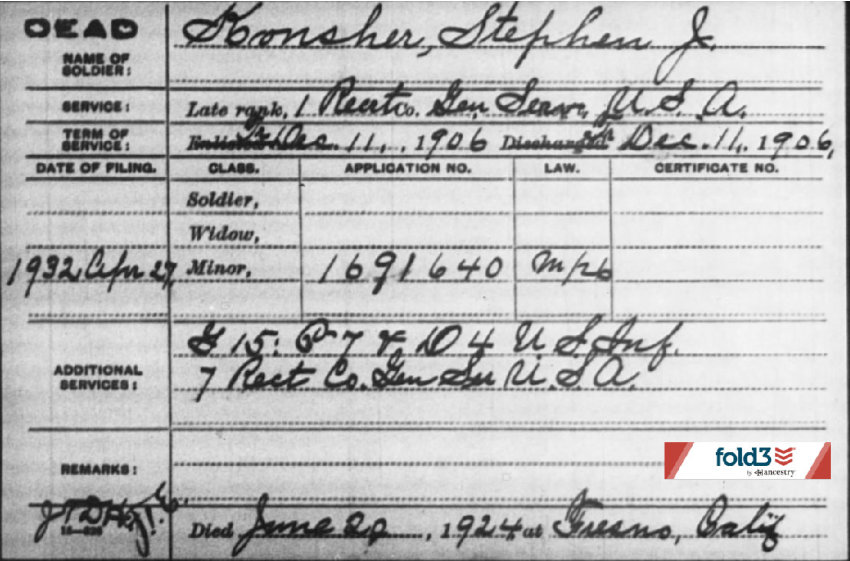 DEAD
NAME OF SOLDIER: Konsher, Stephen J.
SERVICE: Late rank, 1 Recrt Co. Gen. Serv., U.S.A.
TERM OF SERVICE: Enlisted Dec. 11, 1906 Discharged Dec. 11, 1906,
DATE OF FILING. CLASS. APPLICATION NO. LAW. CERTIFICATE NO.
Soldier,
Widow,
1932 Apr 27, Minor, 1691640
ADDITIONAL SERVICES: 15: 7 & D 4 U.S. Inf.
7 Rect Co. Gen Ser U.S.A.
REMARKS:
fold3
by ancestry
Died June 20, 1924 at Fresno, Calif